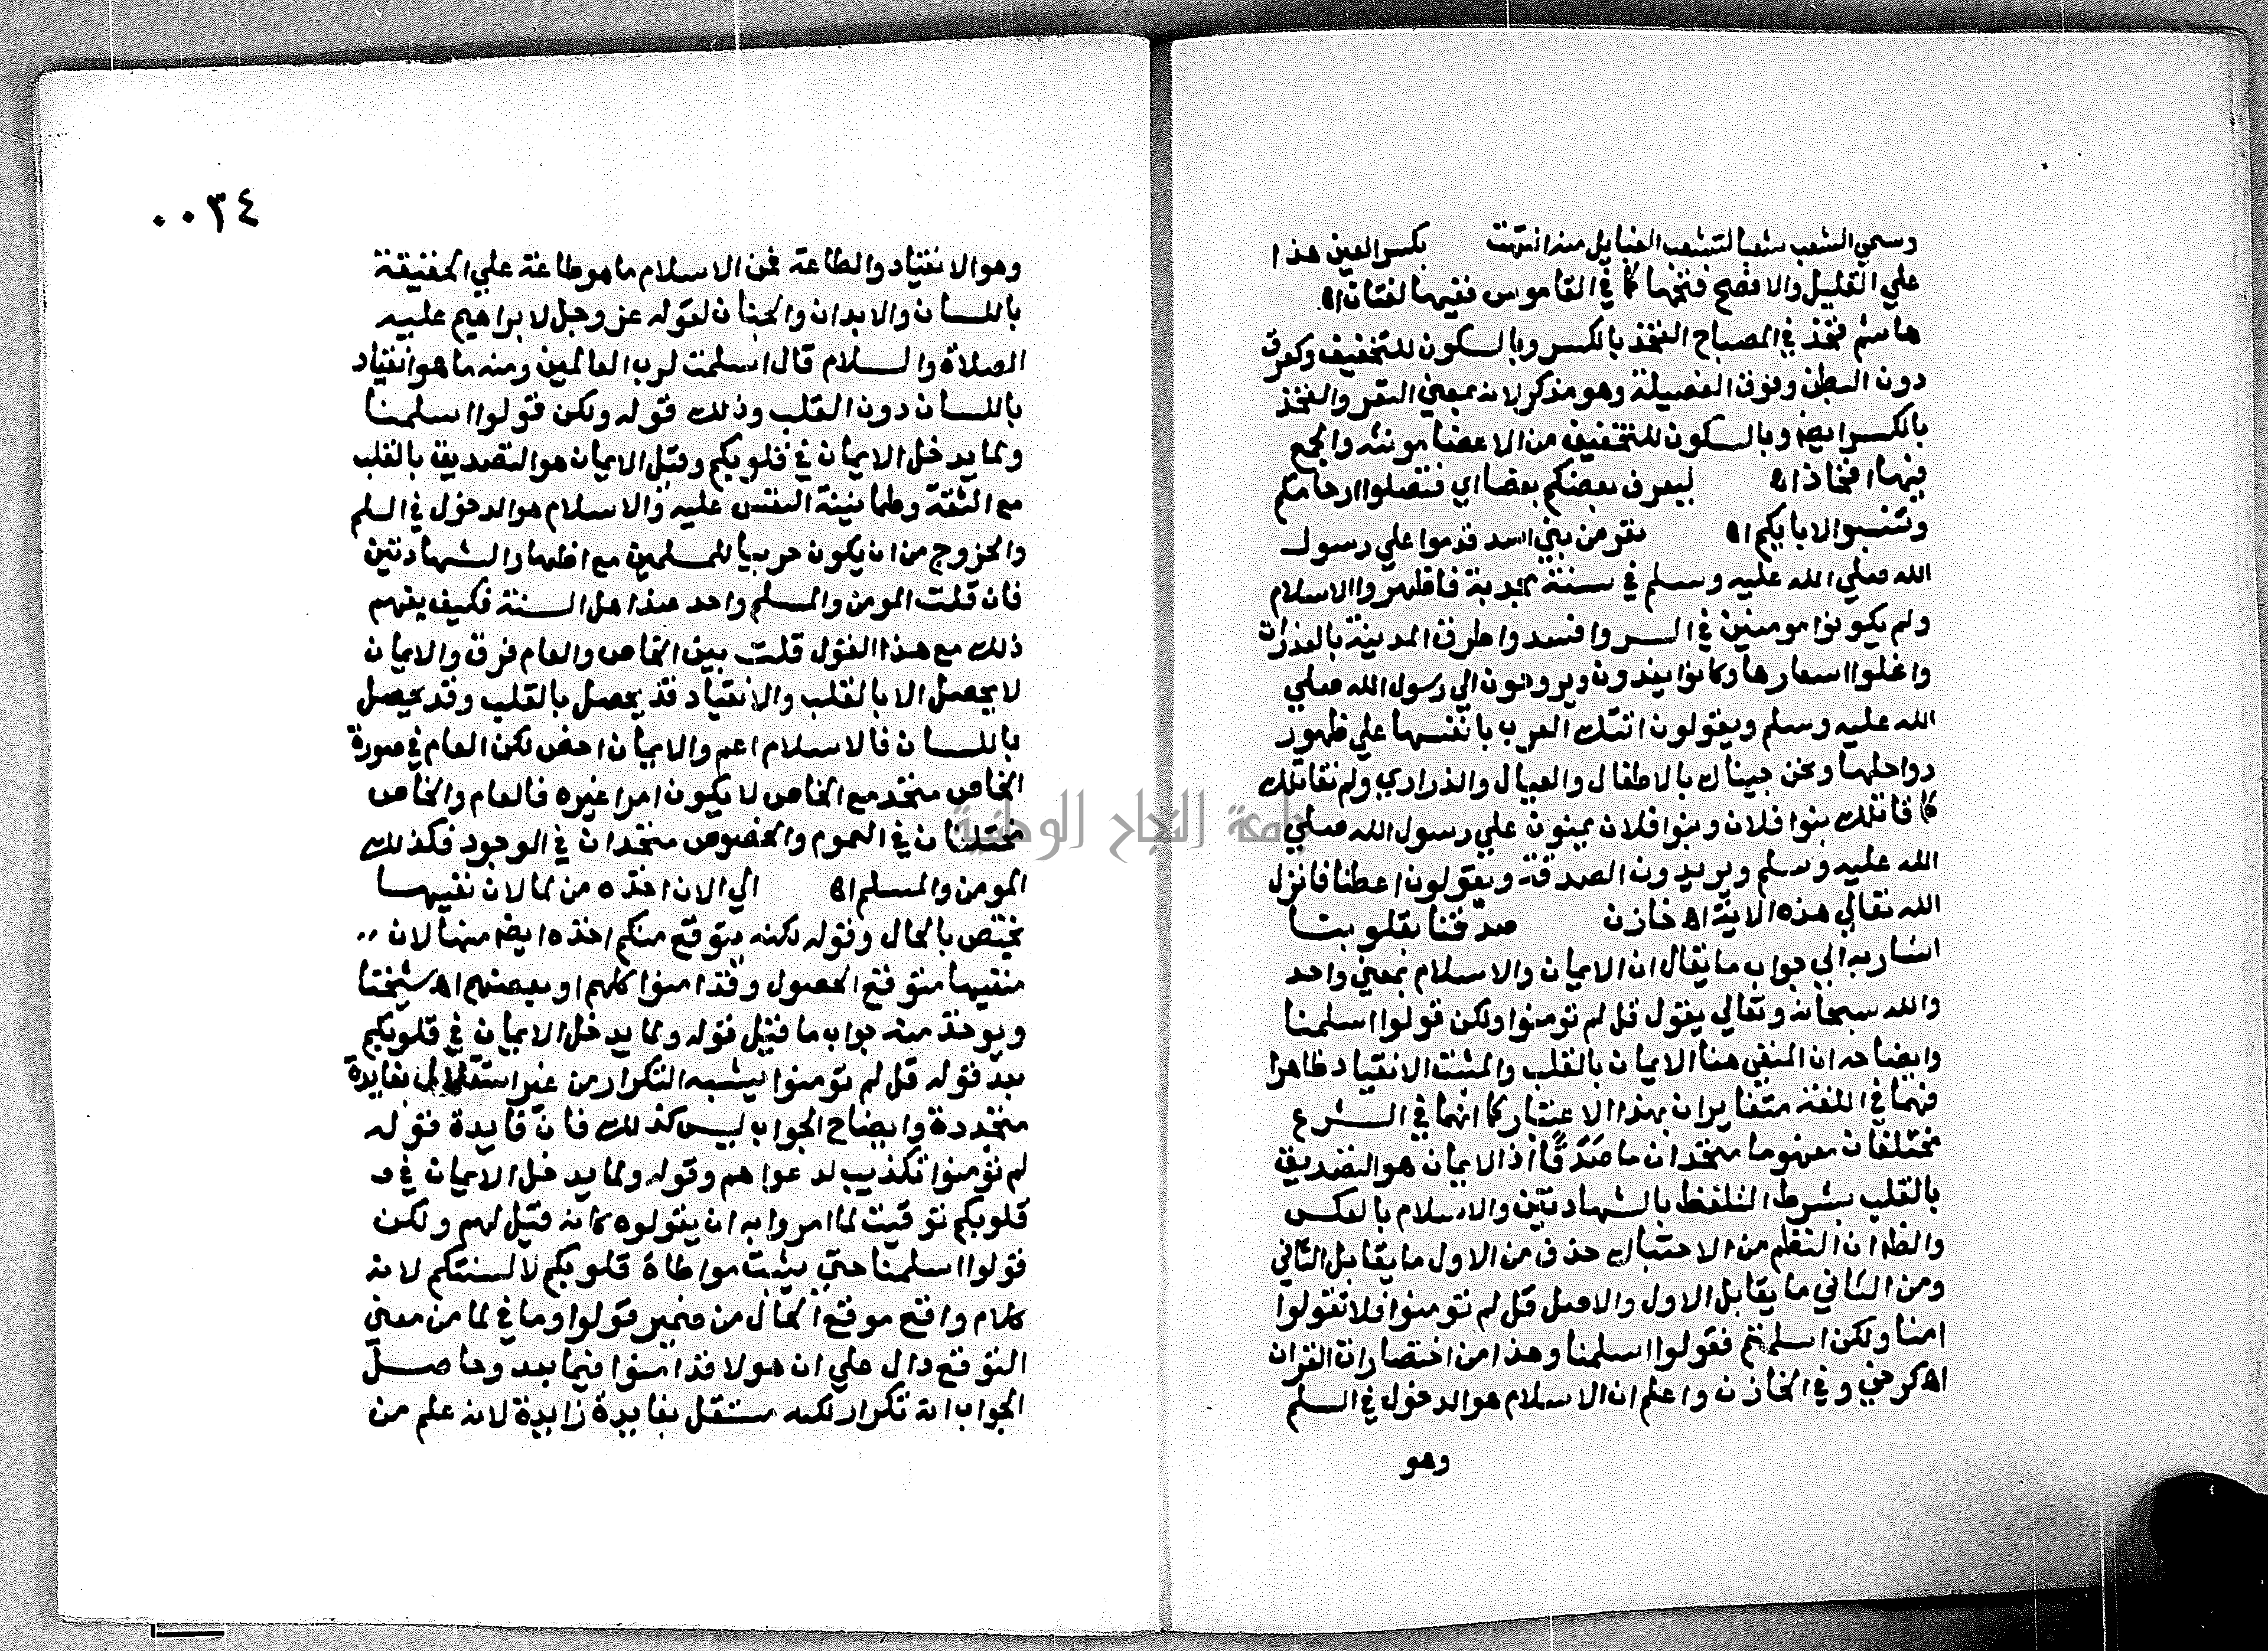 وسمي الشعب شعبا لتشعب القبايل منه انتهت بكسر العين هذا
علي القليل والافصح فتحها كما في القاموس ففيها لغتان اه
هاشم فخذ في المصباح الفخذ بالكسر وبالسكون للتخفيف وكعرق
دون البطن وفوق الفصيلة وهو مذكر لانه بمعني النفر والفخذ
بالكسر ايضا وبالسكون للتخفيف من الاعضا مونثه والجمع
فيها افخاذ اه ليعرف بعضكم بعضا اي فتصلوا ارحامكم
وتنسبوا لابايكم اه نفر من بني اسد قدموا علي رسول
الله صلي الله عليه وسلم في سنة مجدبة فاظهروا الاسلام
ولم يكونوا مومنين في السر وافسدوا طرق المدينة بالعذرات
واغلوا اسعارها وكانوا يغدون ويروحون الي رسول الله صلي
الله عليه وسلم ويقولون اتتك العرب بانفسها علي ظهور
رواحلها ونحن جيناك بالاطفال والعيال والذراري ولم نقاتلك
كما قاتلك بنوا فلان وبنوا فلان يمنون علي رسول الله صلي
الله عليه وسلم ويريدون الصدقة ويقولون اعطنا فانزل
الله تعالي هذه الاية اه خازن صدقنا بقلوبنا
اشار به الي جواب ما يقال ان الايمان والاسلام بمعني واحد
والله سبحانه وتعالي يقول قل لم تومنوا ولكن قولوا اسلمنا
وايضاحه ان المنفي هنا الايمان بالقلب والمثبت الانقياد ظاهرا
فهما في اللغة متغايران بهذا الاعتبار كما انهما في الشرع
مختلفان مفهوما متحدان ما صدقا اذ الايمان هو التصديق
بالقلب بشرط التلفظ بالشهادتين والاسلام بالعكس
والظاهر ان النظم من الاحتباك حذف من الاول ما يقابل الثاني
ومن الثاني ما يقابل الاول والاصل قل لم تومنوا فلا تقولوا
امنا ولكن اسلمتم فقولوا اسلمنا وهذا من اختصارات القران
اه كرخي وفي الخازن واعلم ان الاسلام هو الدخول في السلم
وهو
٠٠٣٤
وهو الانقياد والطاعة فمن الاسلام ما هو طاعة علي الحقيقة
باللسان والابدان والجنان لقوله عز وجل لابراهيم عليه
الصلاة والسلام قال اسلمت لرب العالمين ومنه ما هو انقياد
باللسان دون القلب وذلك قوله ولكن قولوا اسلمنا
ولما يدخل الايمان في قلوبكم وقيل الايمان هو التصديق بالقلب
مع الثقة وطمانينة النفس عليه والاسلام هو الدخول في السلم
والخروج من ان يكون حربيا للمسلمين مع اظهار الشهادتين
فان قلت المومن والمسلم واحد عند اهل السنة فكيف يفهم
ذلك مع هذا القول قلت بين الخاص والعام فرق والايمان
لا يحصل الا بالقلب والانقياد قد يحصل بالقلب وقد يحصل
باللسان فالاسلام اعم والايمان اخص لكن العام في صورة
الخاص متحد مع الخاص لا يكون امرا غيره فالعام والخاص
مختلفان في العموم والخصوص متحدان في الوجود فكذلك
المومن والمسلم اه الي الان اخذه من لما لان نفيها
يختص بالحال وقوله لكنه يتوقع منكم اخذه ايضا منها لان
منفيها متوقع الحصول وقد امنوا كلهم او بعضهم اه شيخنا
ويوخذ منه جواب ما قيل قوله ولما يدخل الايمان في قلوبكم
بعد قوله قل لم تومنوا يشبه التكرار من غير استقلال بفايدة
متجددة وايضاح الجواب ليس كذلك فان فايدة قوله
لم تومنوا تكذيب لدعواهم وقوله ولما يدخل الايمان في
قلوبكم توقيت لما امروا به ان يقولوه كانه قيل لهم ولكن
قولوا اسلمنا حتي يثبت مواطاة قلوبكم لالسنتكم لانه
كلام واقع موقع الحال من ضمير قولوا وما في لما من معني
التوقع دال علي ان هولا قد امنوا فيما بعد وحاصل
الجواب انه تكرار لكنه مستقل بفايدة زايدة لانه علم من
جامعة النجاح الوطنية